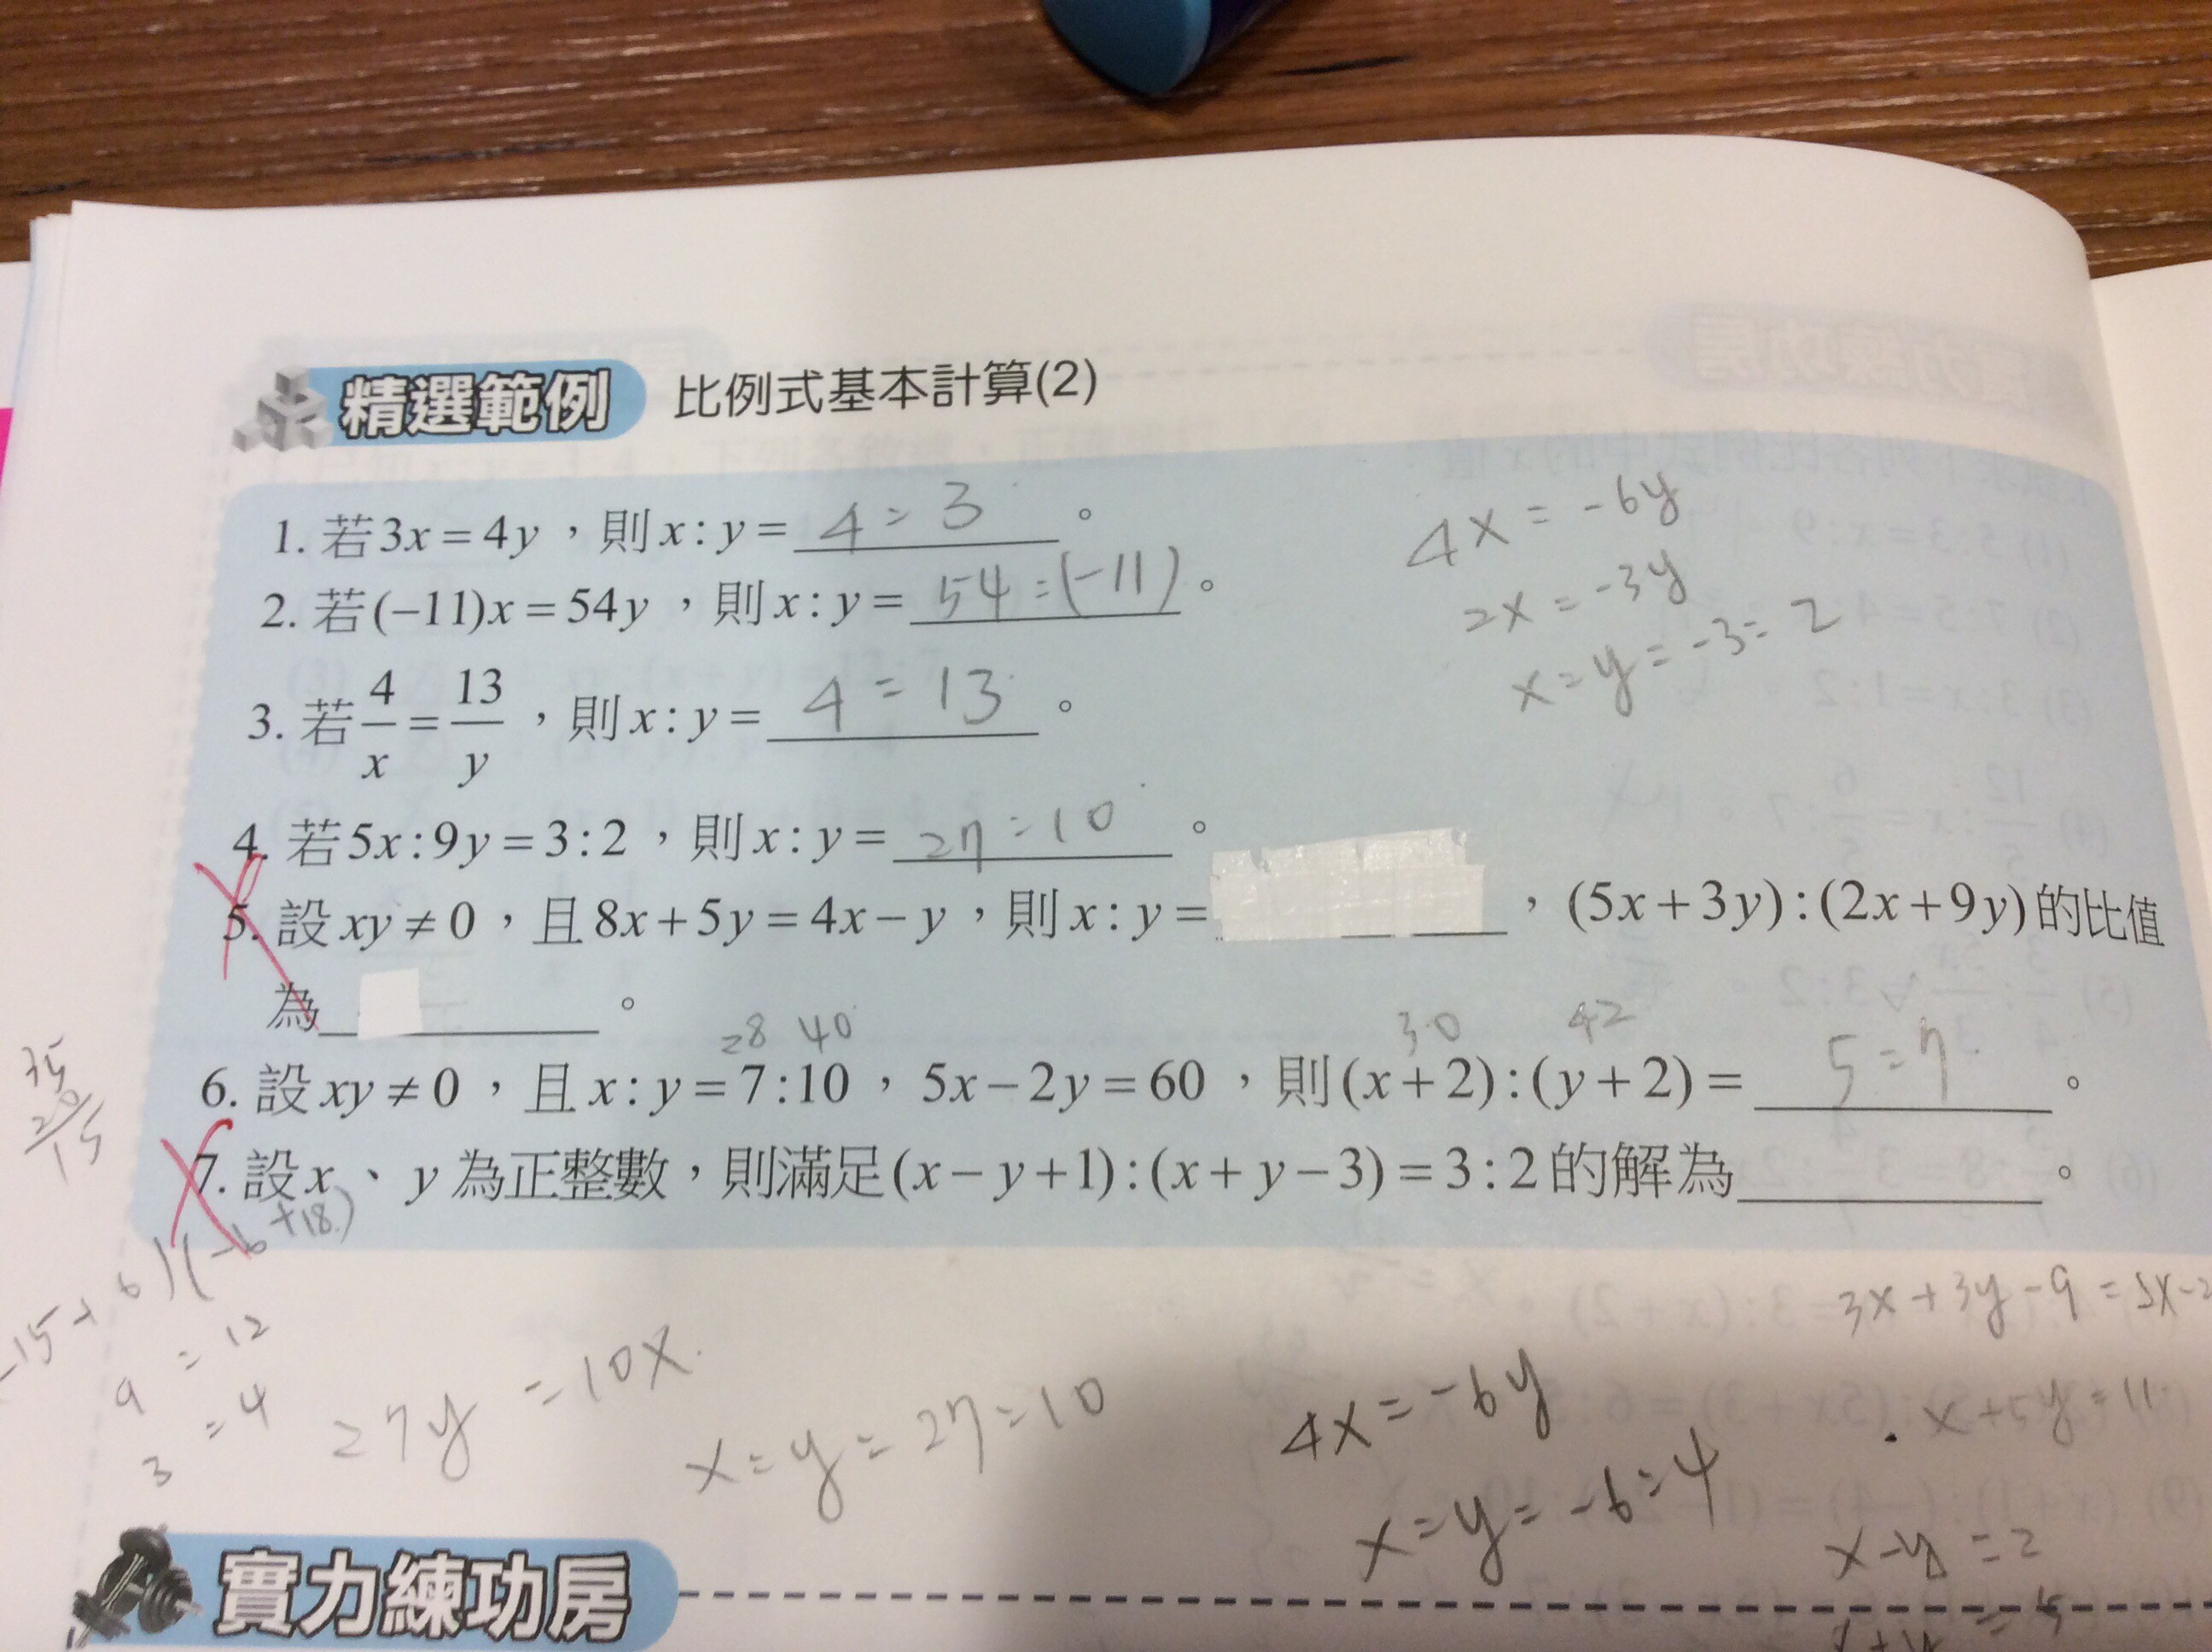 精選範例 比例式基本計算(2)
1. 若3x=4y，則x:y= 4:3 。
4x=-6y
2x=-3y
x:y=-3:2
2. 若(−11)x=54y，則x:y= 54:(-11) 。
3. 若4/x=13/y，則x:y= 4:13 。
4. 若5x:9y=3:2，則x:y= 27:10 。
5. 設xy≠0，且8x+5y=4x−y，則x:y=，(5x+3y):(2x+9y)的比值
為 。
28 40 30 42
6. 設xy≠0，且x:y=7:10，5x−2y=60，則(x+2):(y+2)= 5:7 。
7. 設x、y為正整數，則滿足(x−y+1):(x+y−3)=3:2的解為 。
35
20
15
-15+6)(-6+18)
9:12
3:4
27y=10x
x:y=27:10
4x=-6y
x:y=-6:4
3x+3y-9=
x+5y=11
x-y=2
實力練功房